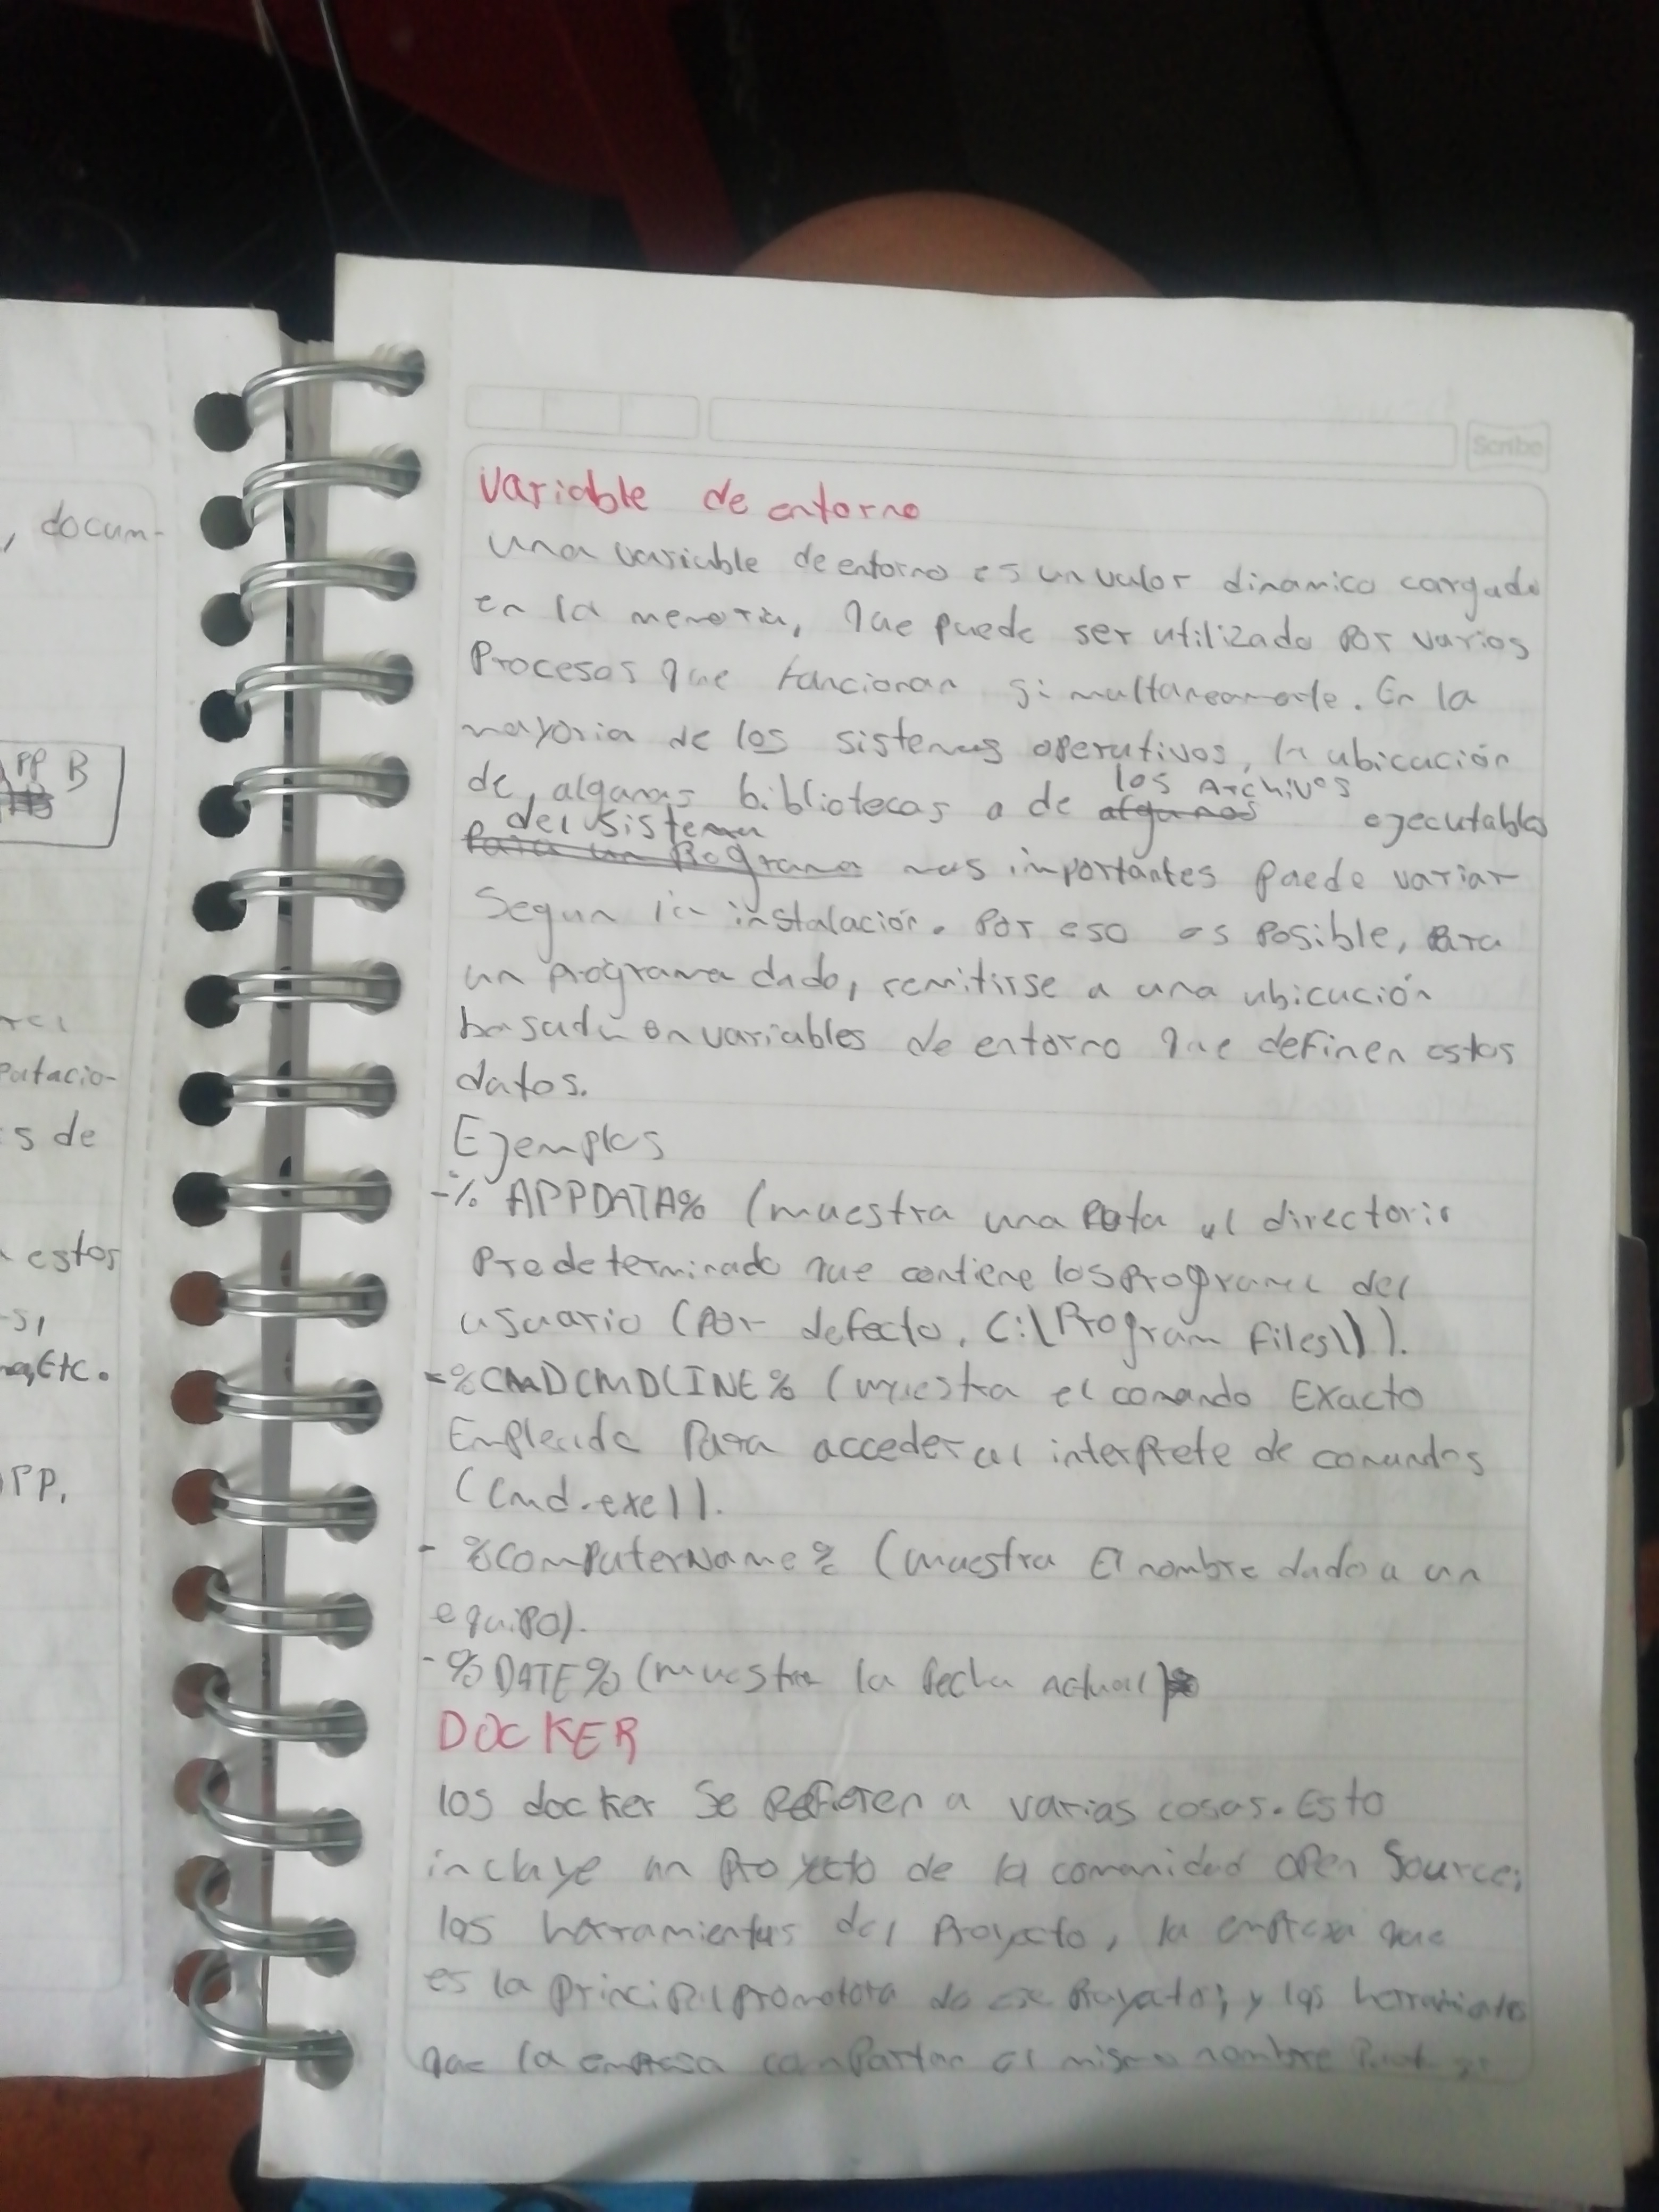 , docum-
PP B
putacio-
s de
estos
s,
na, Etc.
PP,
Scribe
Variable de entorno
una variable de entorno es un valor dinamico cargado
en la memoria, que puede ser utilizado por varios
Procesos que funcionan simultaneamente. En la
mayoria de los sistemas operativos, la ubicación
de algunas bibliotecas o de algunos los Archivos ejecutables
para un Programa del sistema mas importantes puede variar
Segun la instalación. Por eso es Posible, para
un programa dado, remitirse a una ubicación
basada en variables de entorno que definen estos
datos.
Ejemplos
-% APPDATA% (muestra una Ruta al directorio
Predeterminado que contiene los programa del
usuario (por defecto, C:\Program files\)).
-%CMDCMDLINE% (muestra el comando Exacto
Empleado Para acceder al interprete de comandos
(Cmd.exe)).
- %ComputerName% (muestra El nombre dado a un
equipo).
-%DATE% (muestra la fecha actual)
DOCKER
los docker Se Refieren a varias cosas. Esto
incluye un Proyecto de la comunidad open Source;
las herramientas del Proyecto, la empresa que
es la principal promotora de ese Proyecto; y las herramientas
que la empresa comparten el mismo nombre